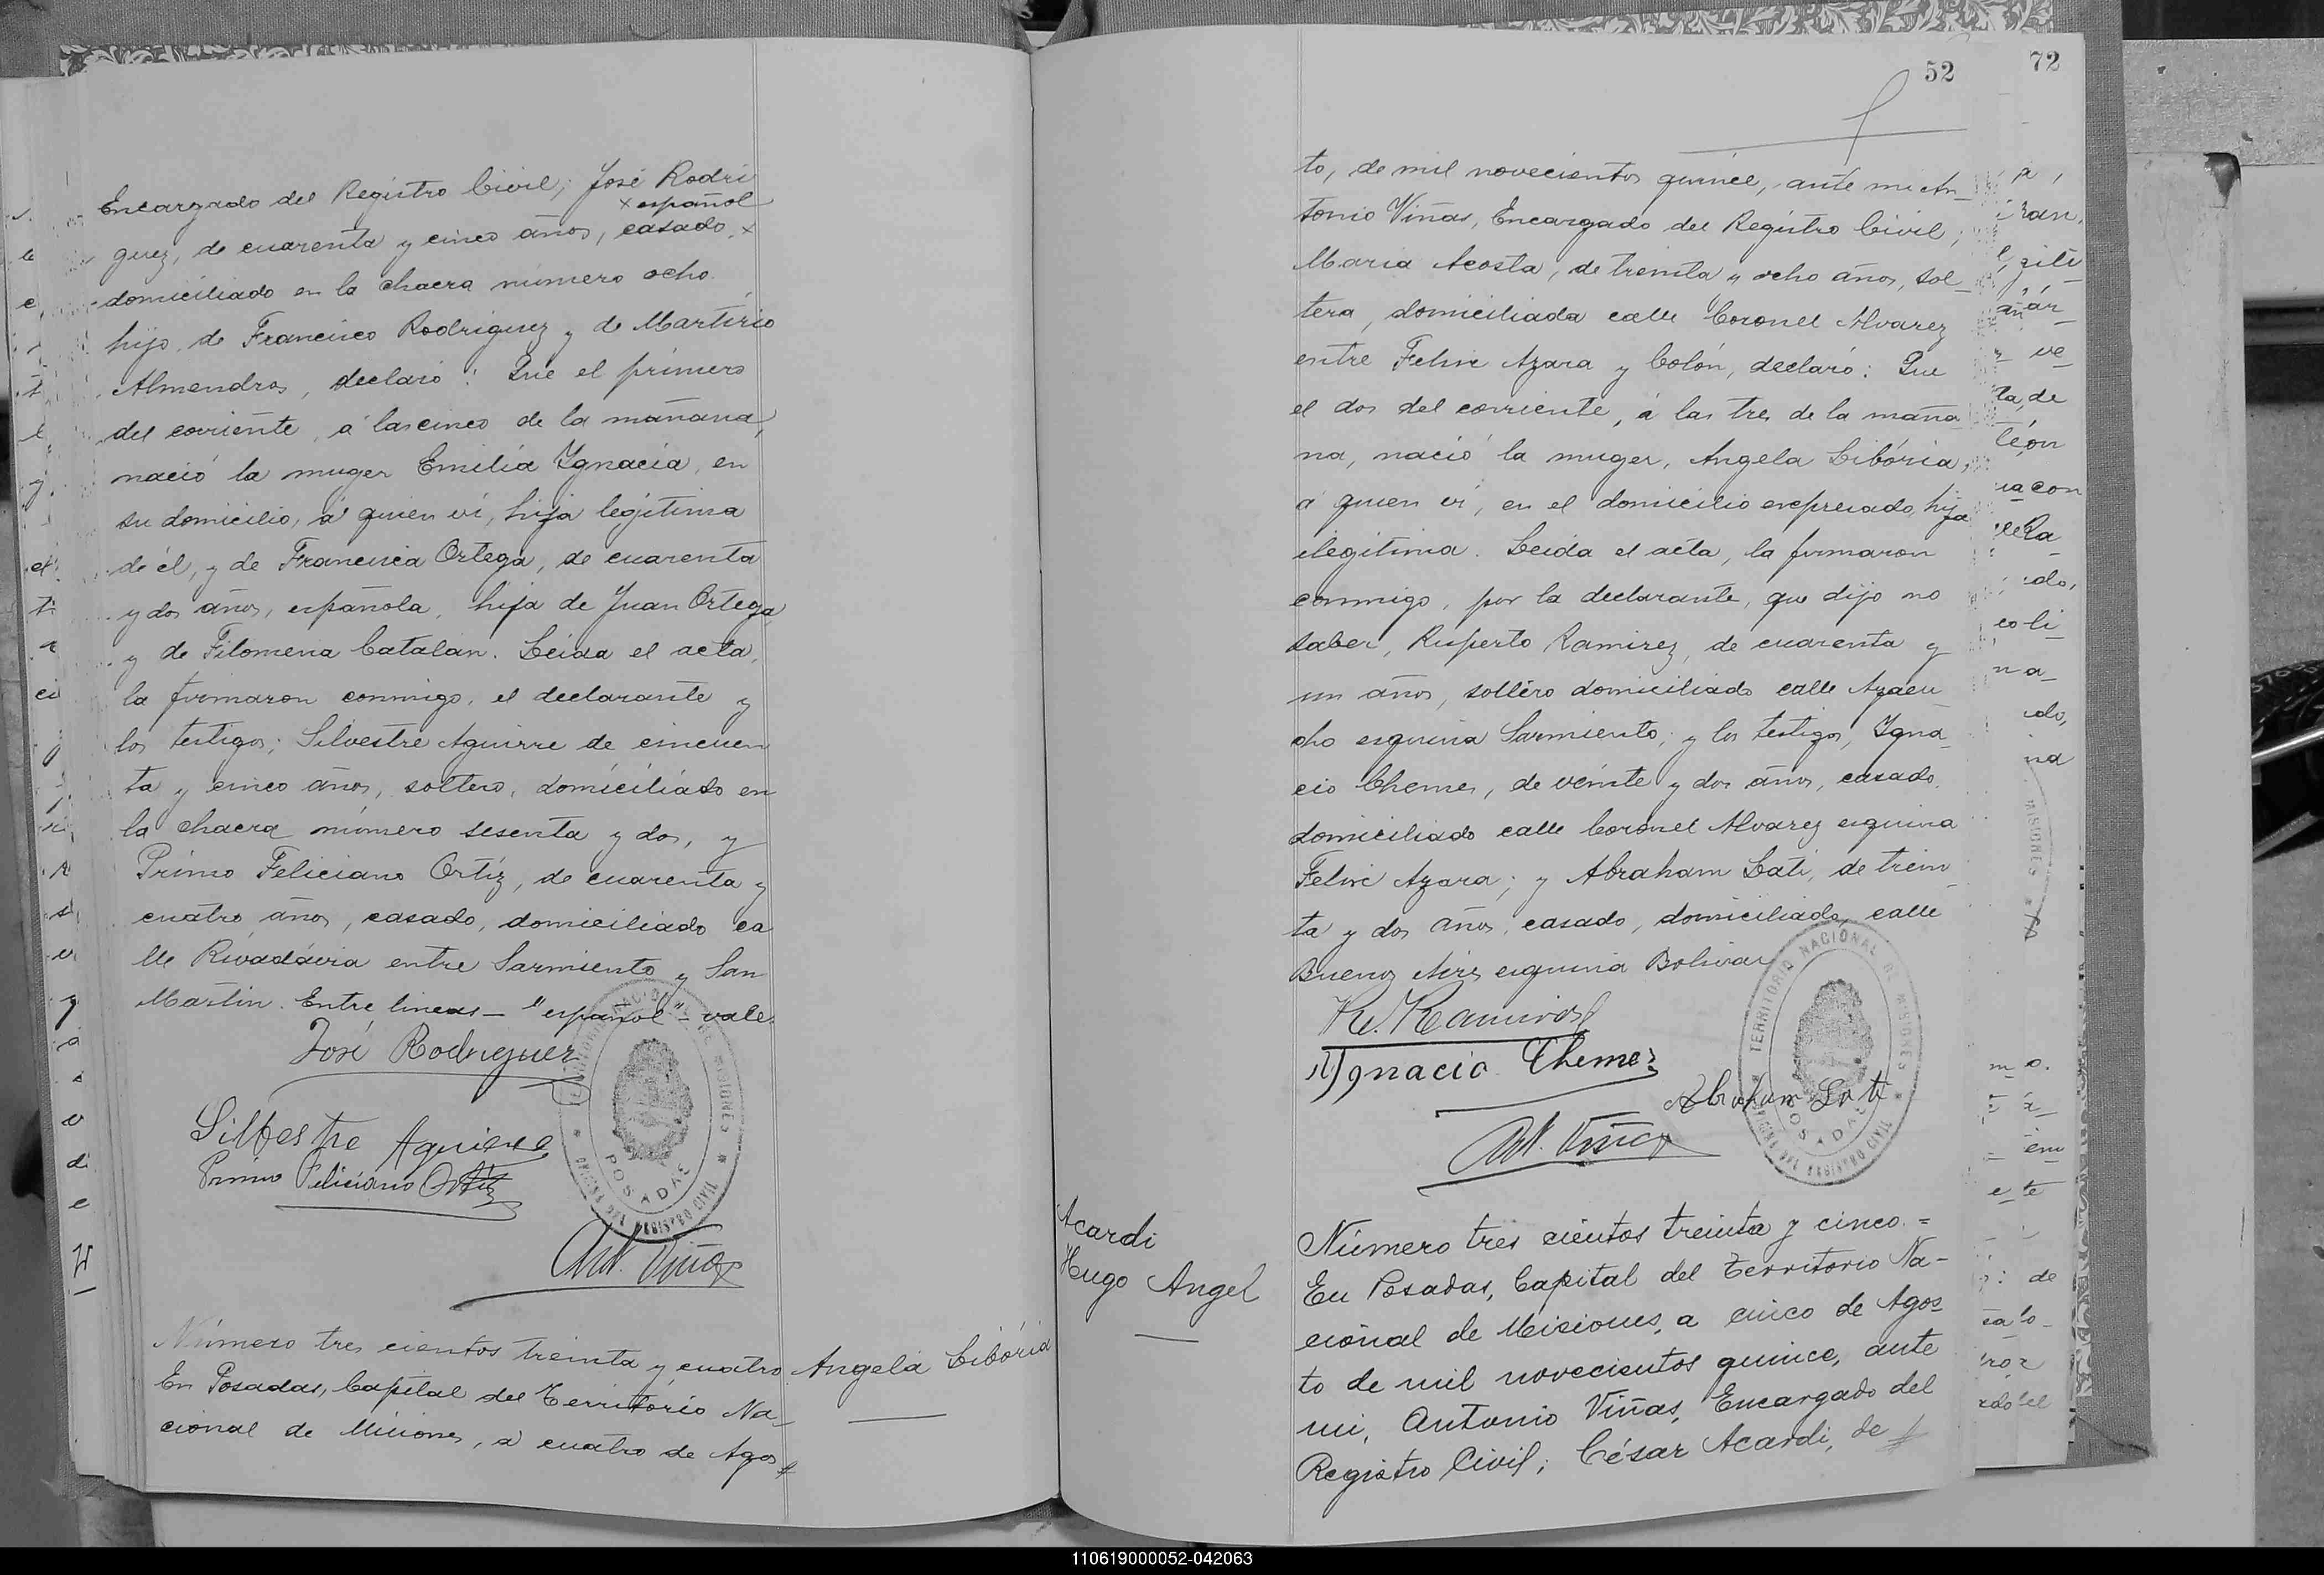 Encargado del Registro Civil; José Rodri
× español
guez, de cuarenta y cinco años, casado, ×
domiciliado en la chacra número ocho
hijo de Francisco Rodriguez y de Martirio
Almendros, declaró: Que el primero
del corriente, á las cinco de la mañana,
nació la muger Emilia Ygnacia, en
su domicilio, á quien ví, hija legítima
de él, y de Francisca Ortega, de cuarenta
y dos años, española, hija de Juan Ortega
y de Filomena Catalan. Leida el acta,
la firmaron conmigo, el declarante y
los testigos; Silvestre Aguirre de cincuen
ta y cinco años, soltero, domiciliado en
la chacra número sesenta y dos, y
Primo Feliciano Ortíz, de cuarenta y
cuatro años, casado, domiciliado ca
lle Rivadávia entre Sarmiento y San
Martin. Entre lineas — "español" — vale.
José Rodriguez
Silbestre Aguirre
Primo Feliciano Ortiz
TERRITORIO NACIONAL DE MISIONES
POSADAS
OFICINA DEL REGISTRO CIVIL
Ant. Viñas
Número tres cientos treinta y cuatro
Angela Libória
En Posadas, Capital del Territorio Na_
cional de Misiones, á cuatro de Agos
52
72
to, de mil novecientos quince, ante mi An_
tonio Viñas, Encargado del Registro Civil;
Maria Acosta, de treinta y ocho años, sol_
tera, domiciliada calle Coronel Alvarez
entre Felix Azara y Colón, declaró: Que
el dos del corriente, á las tres de la maña
na, nació la muger, Angela Libória,
á quien ví, en el domicilio expresado, hija
ilegítima. Leida el acta, la firmaron
conmigo, por la declarante, que dijo no
saber, Ruperto Ramirez, de cuarenta y
un años, soltero domiciliado calle Ayacu
cho esquina Sarmiento; y los testigos, Ygna_
cio Chemes, de veinte y dos años, casado,
domiciliado calle Coronel Alvarez esquina
Felix Azara; y Abraham Lati, de trein_
ta y dos años, casado, domiciliado calle
Buenos Aires esquina Bolivar
R. Ramirez
Ygnacio Chemes
Abraham Lati
TERRITORIO NACIONAL DE MISIONES
POSADAS
OFICINA DEL REGISTRO CIVIL
Ant. Viñas
Acardi
Hugo Angel
Número tres cientos treinta y cinco. =
En Posadas, Capital del Territorio Na-
cional de Misiones, a cinco de Agos_
to de mil novecientos quince, ante
mi, Antonio Viñas, Encargado del
Registro Civil; César Acardi, de
110619000052-042063